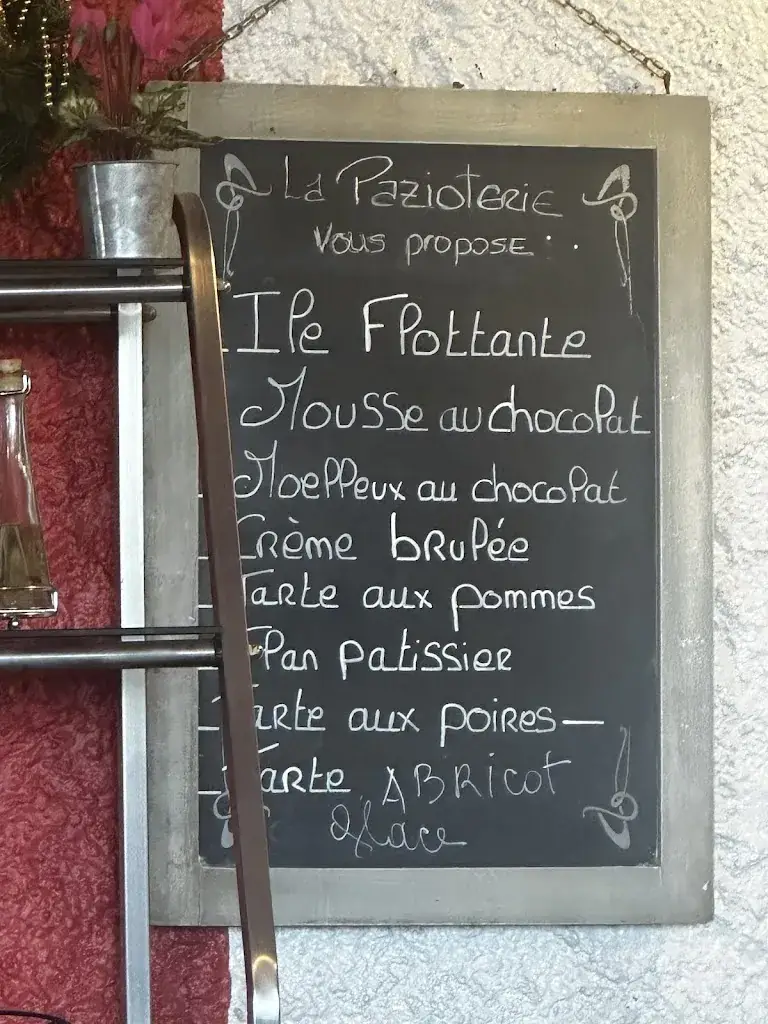 La Pazioterie
Vous propose :.
Ile Flottante
Mousse au chocolat
Moelleux au chocolat
Crème brulée
Tarte aux pommes
Flan patissier
Tarte aux poires —
Tarte ABRicot
glace